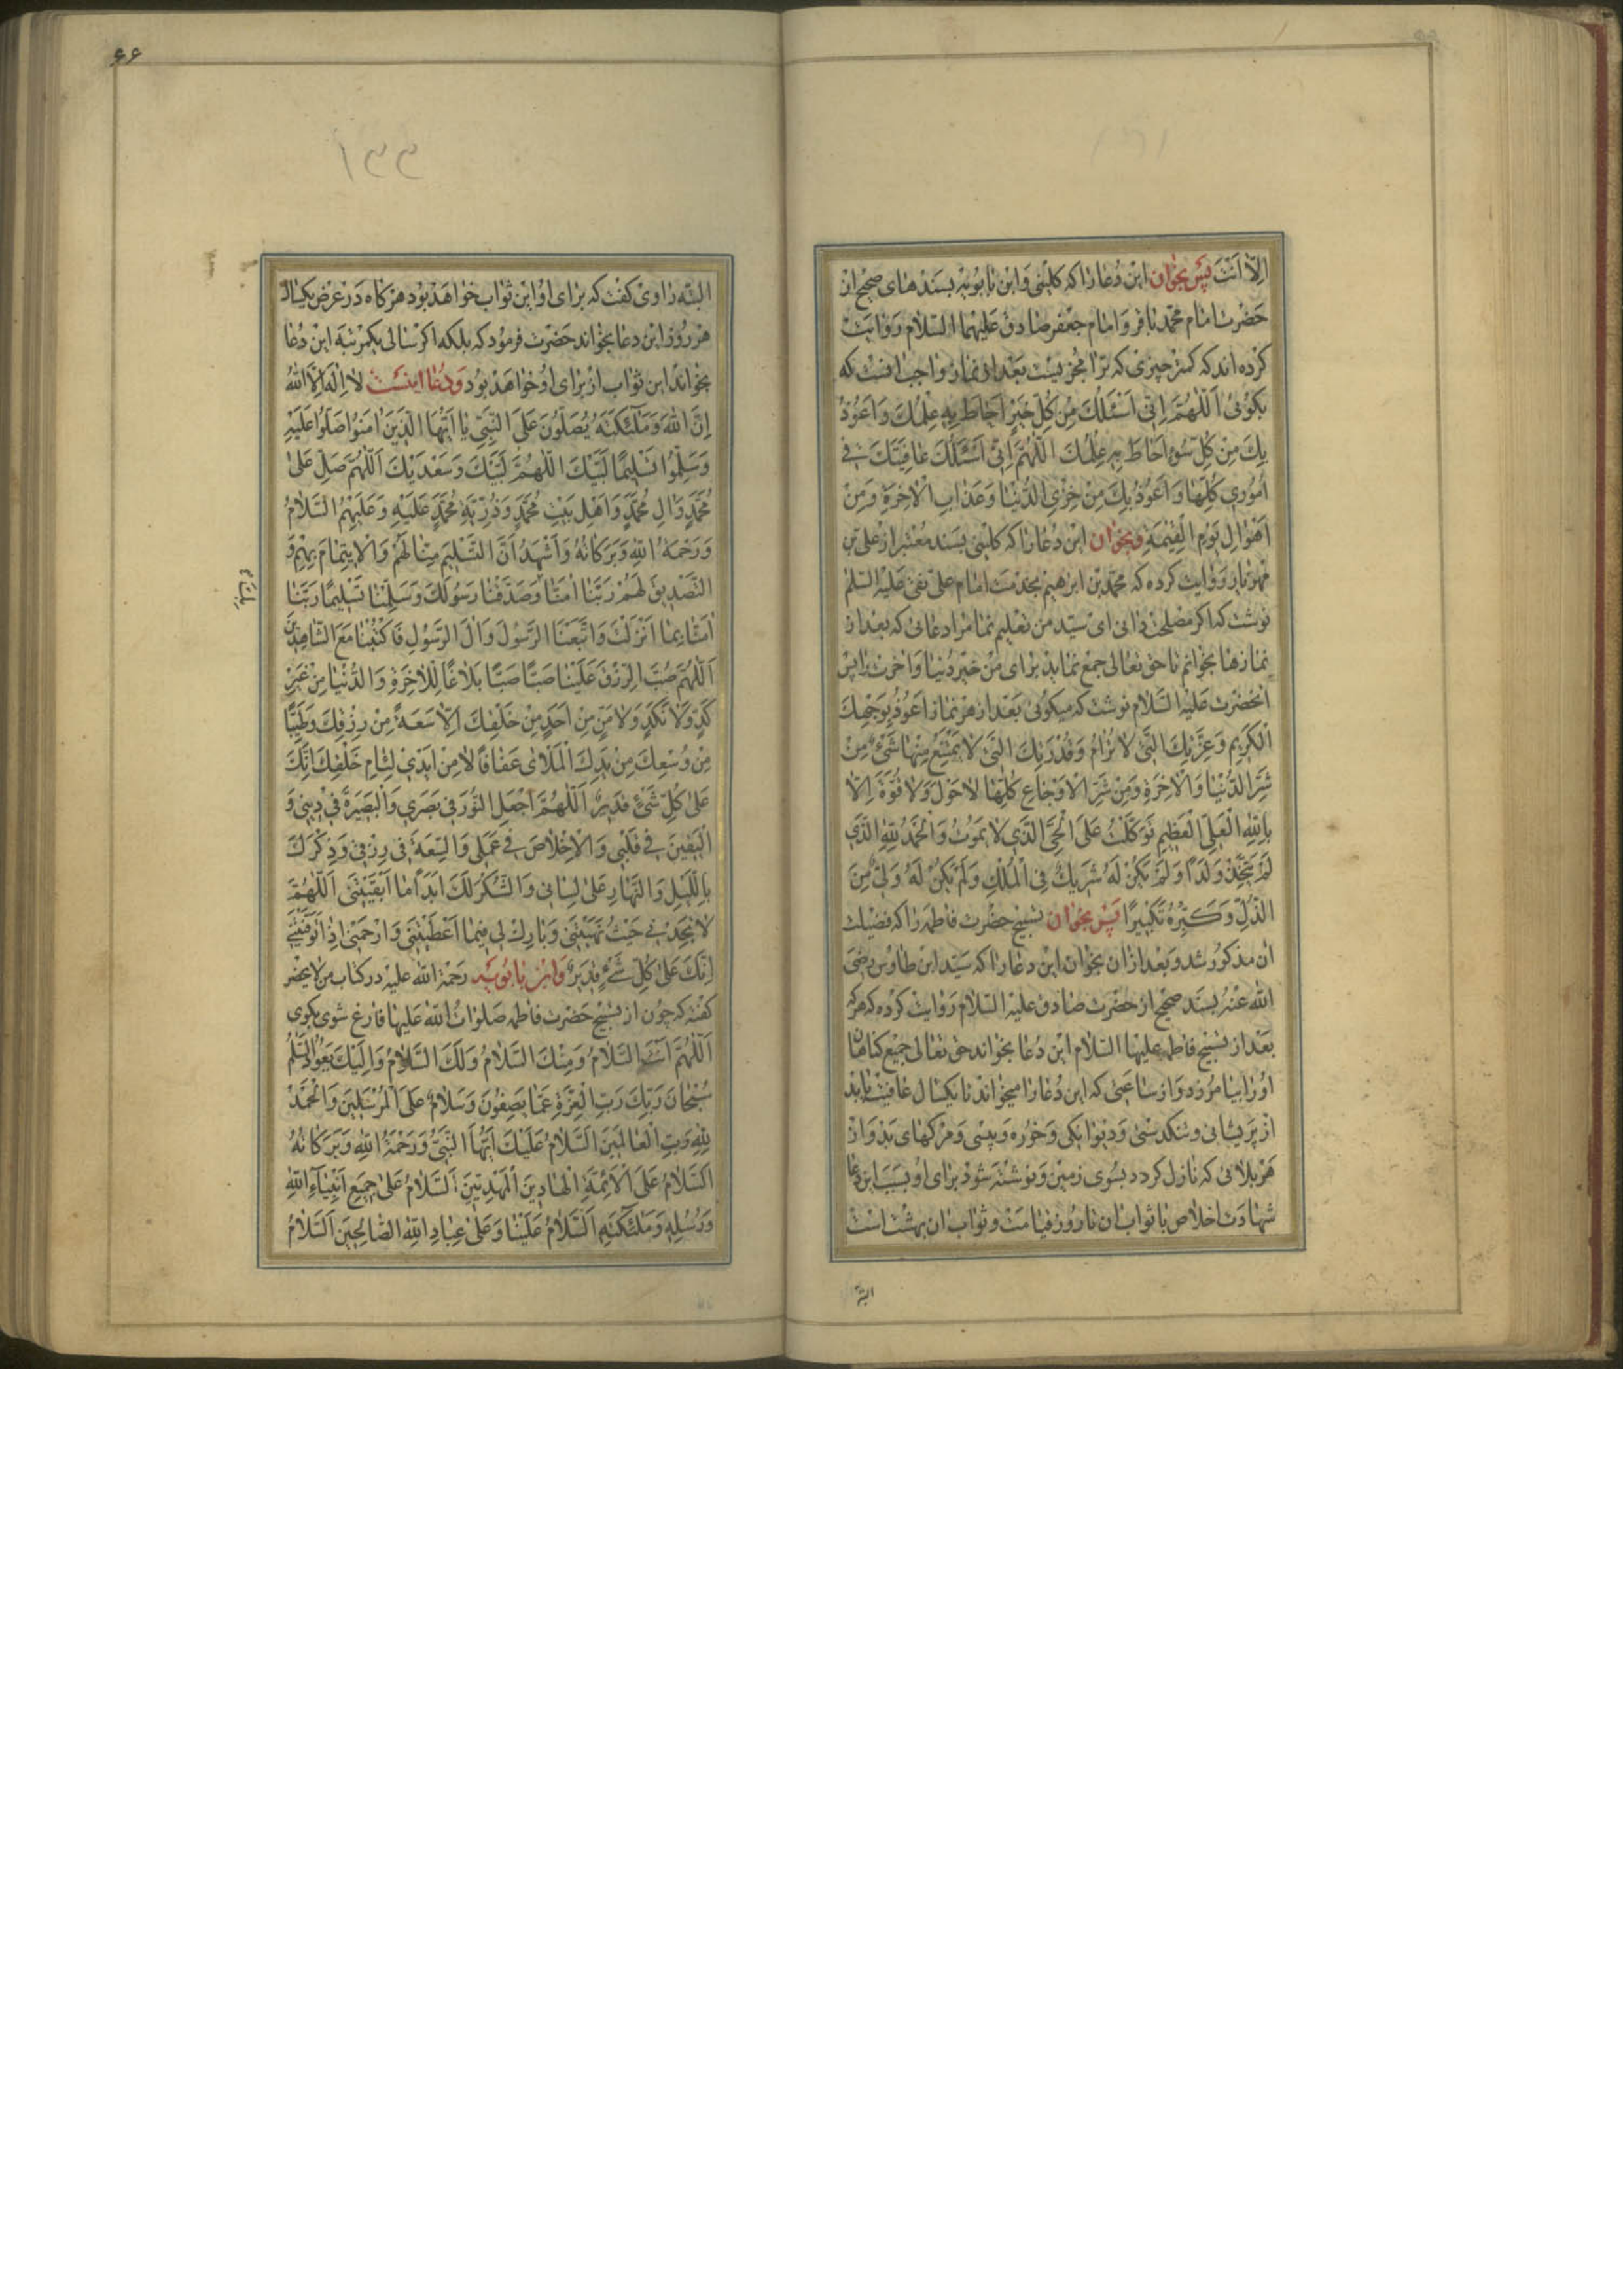 اِلّا اَنْتَ پس بخوان این دُعا را که کلینی وَ ابن بابویه بسندهای صحیح از
حضرت امام محمّد باقر وَ امام جعفر صادق علیهما السّلام روایت
کرده‌اند که کمتر چیزی که ترا مجزیست بعد از نماز واجب آنست که
بکوئی اَللّٰهُمَّ اِنّی اَسْئَلُكَ مِنْ کُلِّ خَیْرٍ اَحاطَ بِهِ عِلْمُكَ وَ اَعُوذُ
بِكَ مِنْ کُلِّ سُوءٍ اَحاطَ بِهِ عِلْمُكَ اللّٰهُمَّ اِنّی اَسْئَلُكَ عافِیَتَكَ فی
اُمُوری کُلِّها وَ اَعُوذُ بِكَ مِنْ خِزْیِ الدُّنْیا وَ عَذابِ الْاٰخِرَةِ وَ مِنْ
اَهْوالِ یَوْمِ الْقِیٰمَةِ و بخوان این دُعا را که کلینی بسند معتبر از علی بن
مهزیار روایت کرده که محمّد بن ابرهیم بخدمت امام علی نقی علیه السلم
نوشت که اکر مصلحت دانی ای سیّد من تعلیم نما مرا دعائی که بعد از
نمازها بخوانم تا حق تعالی جمع نماید برای من خیر دنیا و آخرت را پس
آنحضرت علیه السّلام نوشت که میکوئی بعد از هر نماز اَعُوذُ بِوَجْهِكَ
الْکَرِیمِ وَ عِزَّتِكَ الَّتی لا تُرامُ وَ قُدْرَتِكَ الَّتی لا یَمْتَنِعُ مِنْها شَیْءٌ مِنْ
شَرِّ الدُّنْیا وَ الْاٰخِرَةِ وَ مِنْ شَرِّ الْاَوْجاعِ کُلِّها لا حَوْلَ وَ لا قُوَّةَ اِلّا
بِاللّٰهِ الْعَلِیِّ الْعَظِیمِ تَوَکَّلْتُ عَلَی الْحَیِّ الَّذی لا یَمُوتُ وَ الْحَمْدُ لِلّٰهِ الَّذی
لَمْ یَتَّخِذْ وَلَدًا وَ لَمْ یَکُنْ لَهُ شَرِیكٌ فِی الْمُلْكِ وَ لَمْ یَکُنْ لَهُ وَلِیٌّ مِنَ
الذُّلِّ وَ کَبِّرْهُ تَکْبِیرًا پس بخوان تسبیح حضرت فاطمه را که فضیلت
آن مذکور شد و بعد از آن بخوان این دعا را که سیّد ابن طاوس رضی
الله عنه بسند صحیح از حضرت صادق علیه السّلام روایت کرده که هر که
بعد از تسبیح فاطمه علیها السّلام این دُعا بخواند حق تعالی جمیع کناهان
او را بیامرزد و از ساعتی که این دُعا را میخواند تا یکسال عافیت یابد
از پریشانی و تنکدستی و دیوانکی و خوره و پیسی و مرکهای بد و از
هر بلائی که نازل کردد بسوی زمین و نوشته شود برای او بسبب این دعا
شهادت اخلاص با ثواب آن تا روز قیامت و ثواب آن بهشت است
البتّه
۶۶
۱۳۳
البتّه راوی کفت که برای او این ثواب خواهد بود هر کاه در عرض یکسال
هر روز این دعا بخواند حضرت فرمود که بلکه اکر سالی یکمرتبه این دُعا
بخواند این ثواب از برای او خواهد بود وَ دُعا اینست لا اِلٰهَ اِلَّا اللّٰهُ
اِنَّ اللّٰهَ وَ مَلٰئِکَتَهُ یُصَلُّونَ عَلَی النَّبِیِّ یا اَیُّهَا الَّذینَ اٰمَنُوا صَلُّوا عَلَیْهِ
وَ سَلِّمُوا تَسْلِیمًا لَبَّیْكَ اللّٰهُمَّ لَبَّیْكَ وَ سَعْدَیْكَ اَللّٰهُمَّ صَلِّ عَلٰی
مُحَمَّدٍ وَ اٰلِ مُحَمَّدٍ وَ اَهْلِ بَیْتِ مُحَمَّدٍ وَ ذُرِّیَّةِ مُحَمَّدٍ عَلَیْهِ وَ عَلَیْهِمُ السَّلامُ
وَ رَحْمَةُ اللّٰهِ وَ بَرَکاتُهُ وَ اَشْهَدُ اَنَّ التَّسْلِیمَ مِنّا لَهُمْ وَ الْایتِمامَ بِهِمْ وَ
التَّصْدِیقَ لَهُمْ رَبَّنا اٰمَنّا وَ صَدَّقْنا رَسُولَكَ وَ سَلَّمْنا تَسْلِیمًا رَبَّنا
اٰمَنّا بِما اَنْزَلْتَ وَ اتَّبَعْنَا الرَّسُولَ وَ اٰلَ الرَّسُولِ فَاکْتُبْنا مَعَ الشّاهِدِینَ
اَللّٰهُمَّ صُبَّ الرِّزْقَ عَلَیْنا صَبًّا صَبًّا بَلاغًا لِلْاٰخِرَةِ وَ الدُّنْیا مِنْ غَیْرِ
کَدٍّ وَ لا نَکَدٍ وَ لا مَنٍّ مِنْ اَحَدٍ مِنْ خَلْقِكَ اِلّا سَعَةً مِنْ رِزْقِكَ وَ طَیِّبًا
مِنْ وُسْعِكَ مِنْ یَدِكَ الْمَلْأی عَفافًا لا مِنْ اَیْدی لِئامِ خَلْقِكَ اِنَّكَ
عَلٰی کُلِّ شَیْءٍ قَدِیرٌ اَللّٰهُمَّ اجْعَلِ النُّورَ فی بَصَری وَ الْبَصِیرَةَ فی دِینی وَ
الْیَقِینَ فی قَلْبی وَ الْاِخْلاصَ فی عَمَلی وَ السِّعَةَ فی رِزْقی وَ ذِکْرَكَ
بِاللَّیْلِ وَ النَّهارِ عَلٰی لِسانی وَ الشُّکْرَ لَكَ اَبَدًا ما اَبْقَیْتَنی اَللّٰهُمَّ
لا تَجِدْنی حَیْثُ نَهَیْتَنی وَ بارِكْ لی فیما اَعْطَیْتَنی وَ ارْحَمْنی اِذا تَوَفَّیْتَنی
اِنَّكَ عَلٰی کُلِّ شَیْءٍ قَدِیرٌ و ابن بابویه رحمة الله علیه در کتاب من لا یحضر
کفته که چون از تسبیح حضرت فاطمه صلوات الله علیها فارغ شوی بکوی
اَللّٰهُمَّ اَنْتَ السَّلامُ وَ مِنْكَ السَّلامُ وَ لَكَ السَّلامُ وَ اِلَیْكَ یَعُودُ السَّلٰمُ
سُبْحانَ رَبِّكَ رَبِّ الْعِزَّةِ عَمّا یَصِفُونَ وَ سَلامٌ عَلَی الْمُرْسَلِینَ وَ الْحَمْدُ
لِلّٰهِ رَبِّ الْعالَمِینَ السَّلامُ عَلَیْكَ اَیُّهَا النَّبِیُّ وَ رَحْمَةُ اللّٰهِ وَ بَرَکاتُهُ
اَلسَّلامُ عَلَی الْاَئِمَّةِ الْهادِینَ الْمَهْدِیِّینَ اَلسَّلامُ عَلٰی جَمِیعِ اَنْبِیاءِ اللّٰهِ
وَ رُسُلِهِ وَ مَلٰئِکَتِهِ اَلسَّلامُ عَلَیْنا وَ عَلٰی عِبادِ اللّٰهِ الصّالِحِینَ اَلسَّلامُ